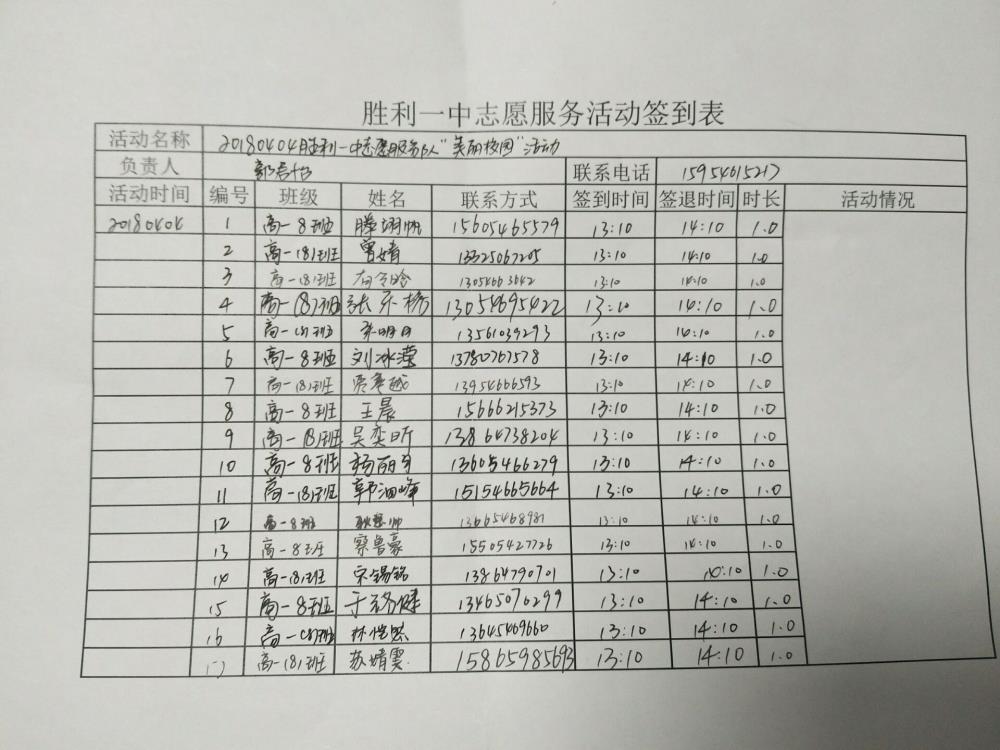 胜利一中志愿服务活动签到表
活动名称 20180404胜利一中志愿服务队"美丽校园"活动
负责人 联系电话 15954615217
活动时间 编号 班级 姓名 联系方式 签到时间 签退时间 时长 活动情况
20180404 1 高一8班 滕翊帆 15605465579 13:10 14:10 1.0
2 高一(8)班 曾婧 13325067205 13:10 14:10 1.0
3 高一(8)班 13054663642 13:10 14:10 1.0
4 高一(8)班 张不杨 13054695422 13:10 14:10 1.0
5 高一(8)班 13561039293 13:10 14:10 1.0
6 高一8班 刘冰莹 13780767578 13:10 14:10 1.0
7 高一(8)班 13954666593 13:10 14:10 1.0
8 高一8班 王晨 15666215373 13:10 14:10 1.0
9 高一(8)班 吴奕昕 13864738204 13:10 14:10 1.0
10 高一8班 13605466279 13:10 14:10 1.0
11 高一(8)班 15154665664 13:10 14:10 1.0
12 高一8班 13665468981 13:10 14:10 1.0
13 高一8班 蔡鲁豪 15505427726 13:10 14:10 1.0
14 高一(8)班 宋锡铭 13864790701 13:10 14:10 1.0
15 高一8班 13465076299 13:10 14:10 1.0
16 高一(8)班 13645469660 13:10 14:10 1.0
17 高一(8)班 苏婧雯 15865985693 13:10 14:10 1.0